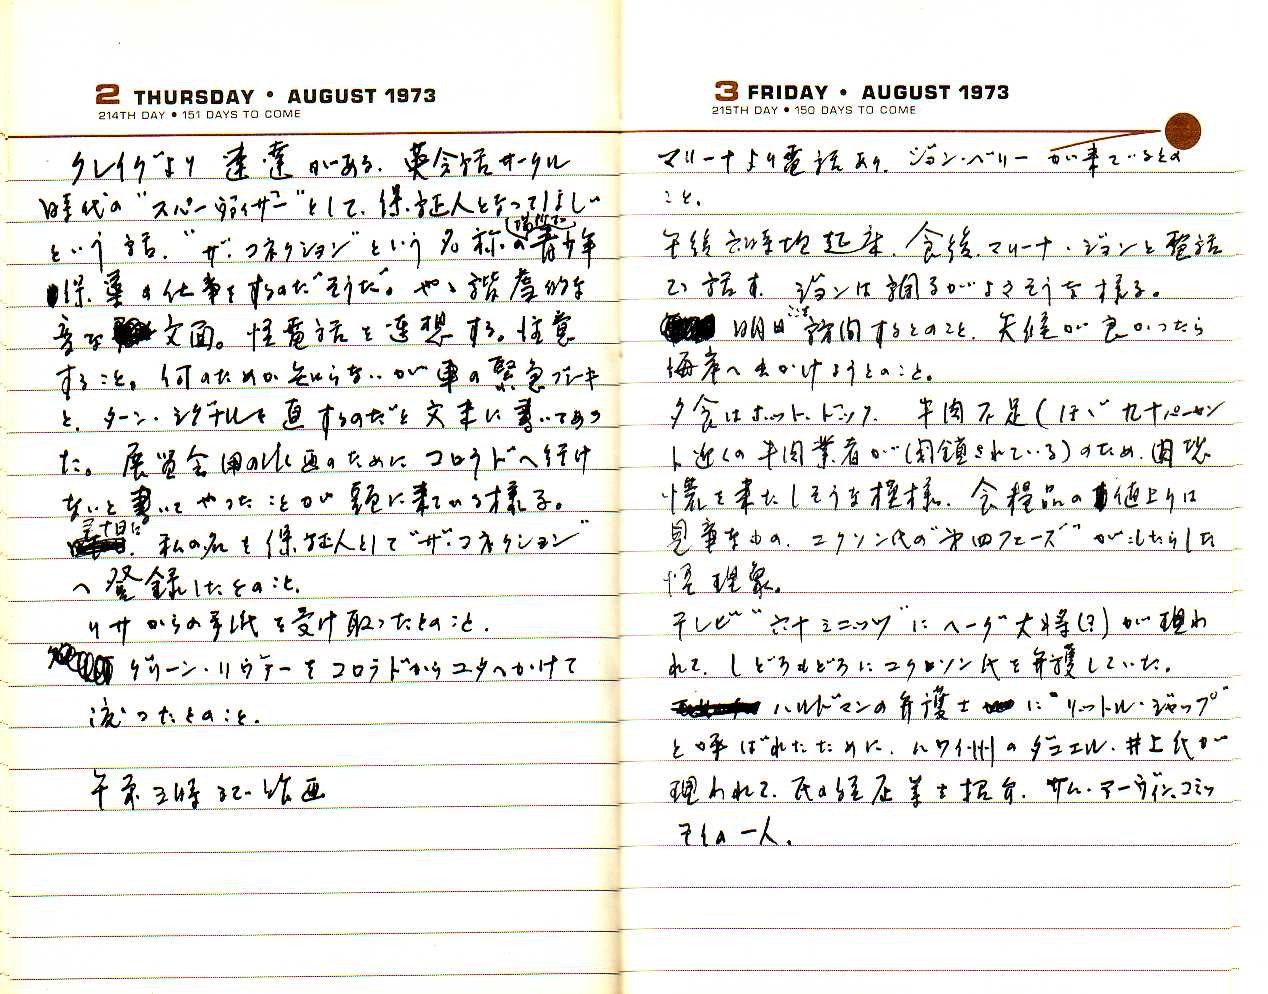 2 THURSDAY • AUGUST 1973
214TH DAY • 151 DAYS TO COME
クレイグより 速達がある。英会話サークル
時代の"スパーヴァイザー"として、保証人となってほしい
という話。"ザ・コネクション"という名称の青少年
の仕事をするのだそうだ。やゝ諧虐的な
文面。怪電話を連想する。注意
すること。何のためか知らないが車の緊急ブレーキ
と、ターン・シグナルを直すのだと文末に書いてあっ
た。展覧会用の絵画のためにコロラドへ行け
ないと書いてやったことが頭に来ている様子。
私の名を保証人として"ザ・コネクション"
へ登録したとのこと。
リサからの手代を受け取ったとのこと。
グリーン・リヴァーをコロラドからユタへかけて
下ったとのこと。
午前三時まで絵画
3 FRIDAY • AUGUST 1973
215TH DAY • 150 DAYS TO COME
マリーナより電話あり。ジョン・ベリーが来ているとの
こと。
午後六時半起床。食後、マリーナ・ジョンと電話
で話す。ジョンは調子がよさそうな様子。
明日訪問するとのこと、天候が良かったら
海岸へ出かけようとのこと。
夕食はホット・ドック。牛肉不足(ほゞ九十パーセン
ト近くの牛肉業者が閉鎖されている)のため、肉恐
慌を来たしそうな模様。食糧品の値上りは
見事なもの、ニクソン代の"第四フェーズ"がもたらした
怪現象。
テレビ"六十ミニッツ"にヘーグ大将(?)が現わ
れて、しどろもどろにニクソン氏を弁護していた。
ハルドマンの弁護士に"リットル・ジャップ"
と呼ばれたために、ハワイ州のダニエル・井上氏が
現われて、氏の経歴等を紹介。サム・アーヴィン、コミッ
ティの一人。